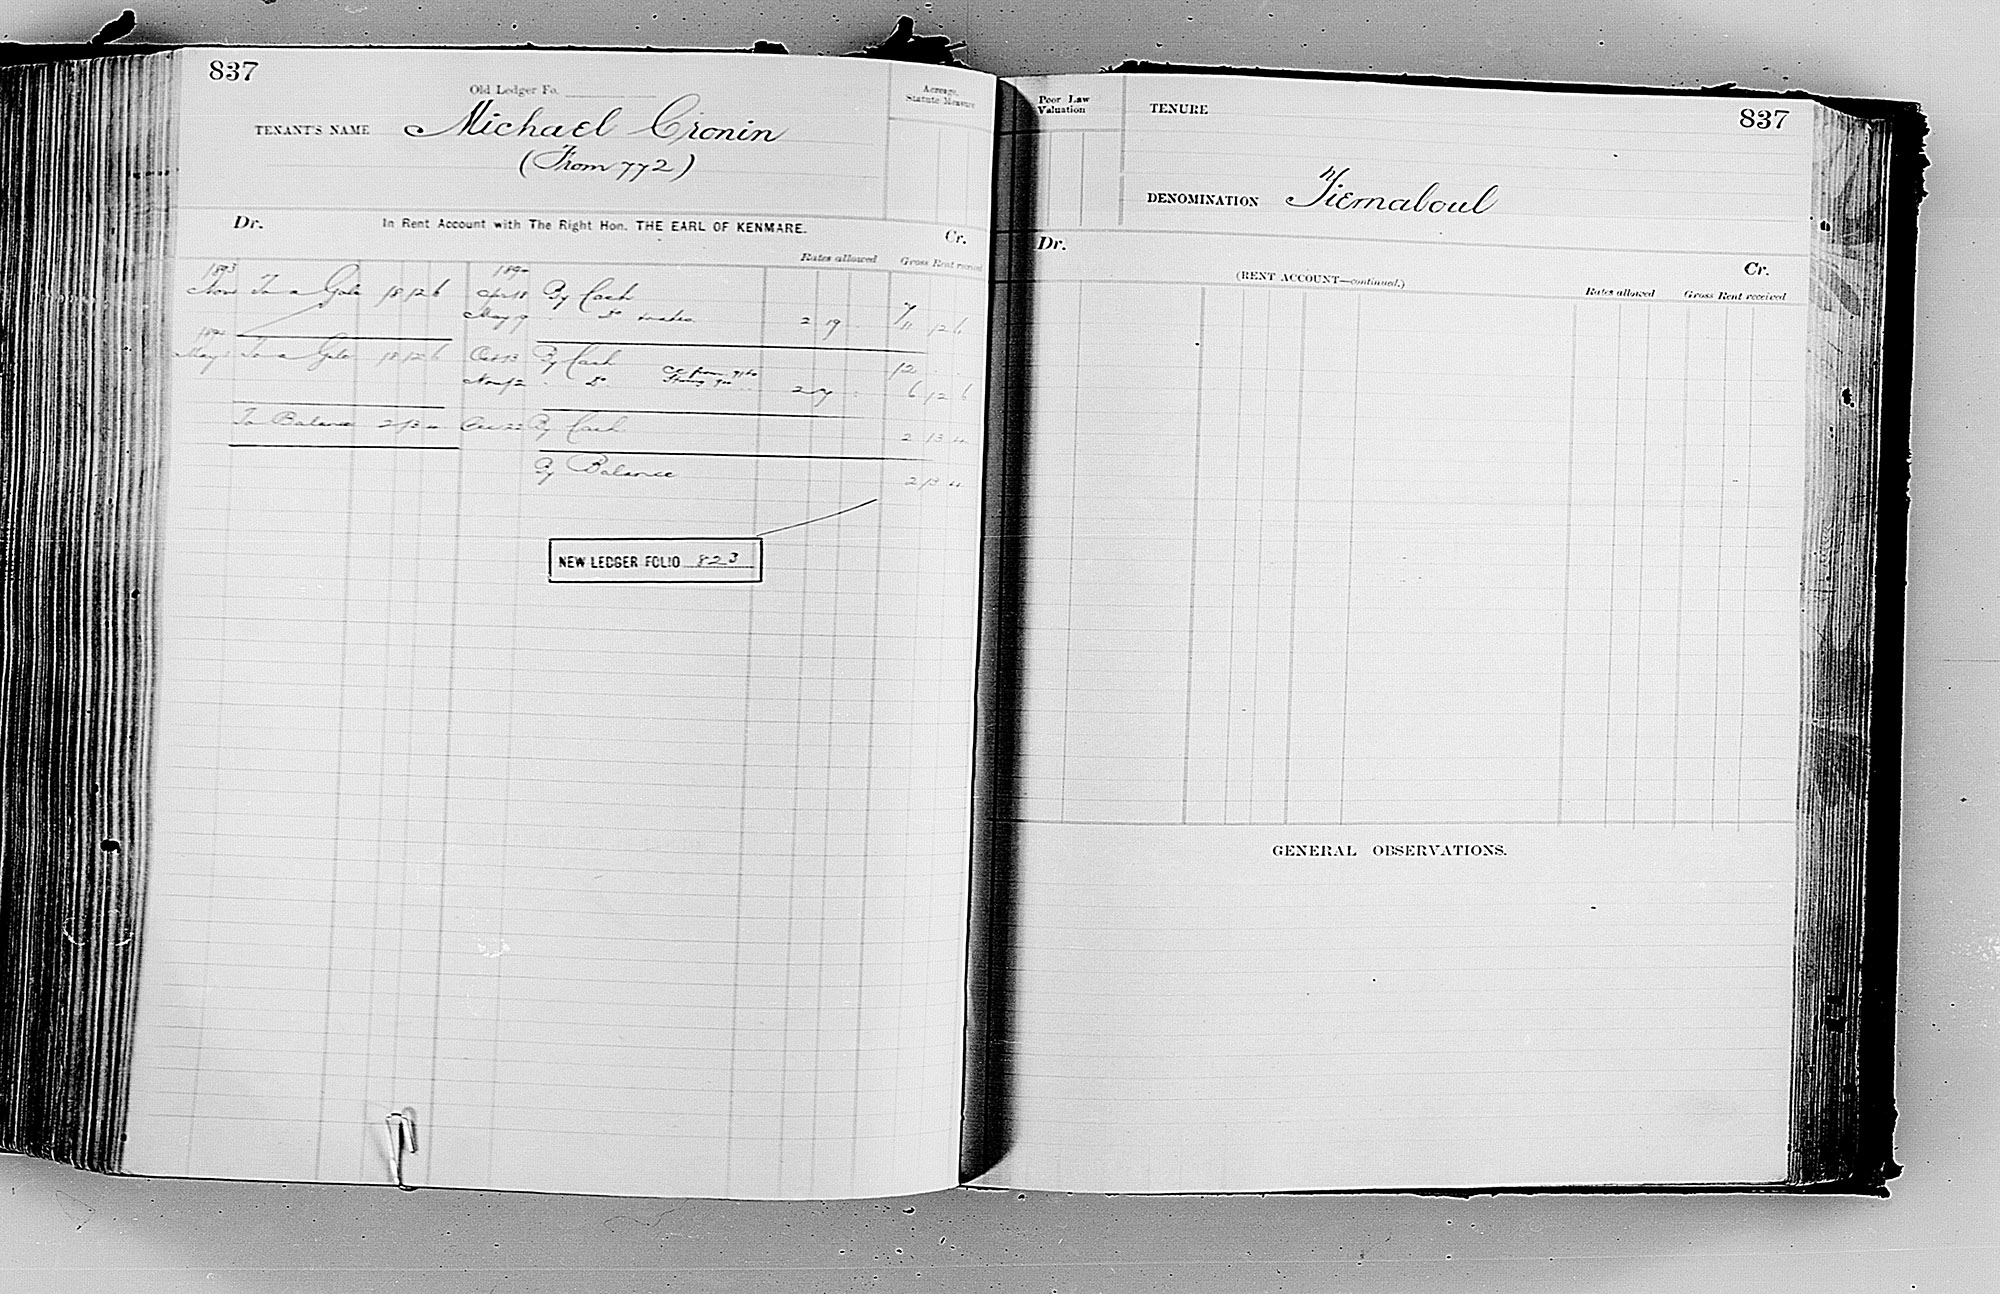 837
Old Ledger Fo.
TENANT'S NAME Michael Cronin
(From 772)
Acreage, Statute Measure
Dr. In Rent Account with The Right Hon. THE EARL OF KENMARE. Cr.
Rates allowed Gross Rent received
1893 189
Nov To a Gale 18 12 6 Apr 18 By Cash 7
May 9 " Do 2 19 11 12 6
May 1 To a Gale 18 12 6 Oct 13 By Cash 12
Nov 12 " Do 2 7 6 12 6
To Balance 2 13 4 Dec 22 By Cash 2 13 4
By Balance 2 13 4
NEW LEDGER FOLIO 823
Poor Law Valuation
TENURE
837
DENOMINATION Tiernaboul
Dr. Cr.
(RENT ACCOUNT—continued.)
Rates allowed Gross Rent received
GENERAL OBSERVATIONS.